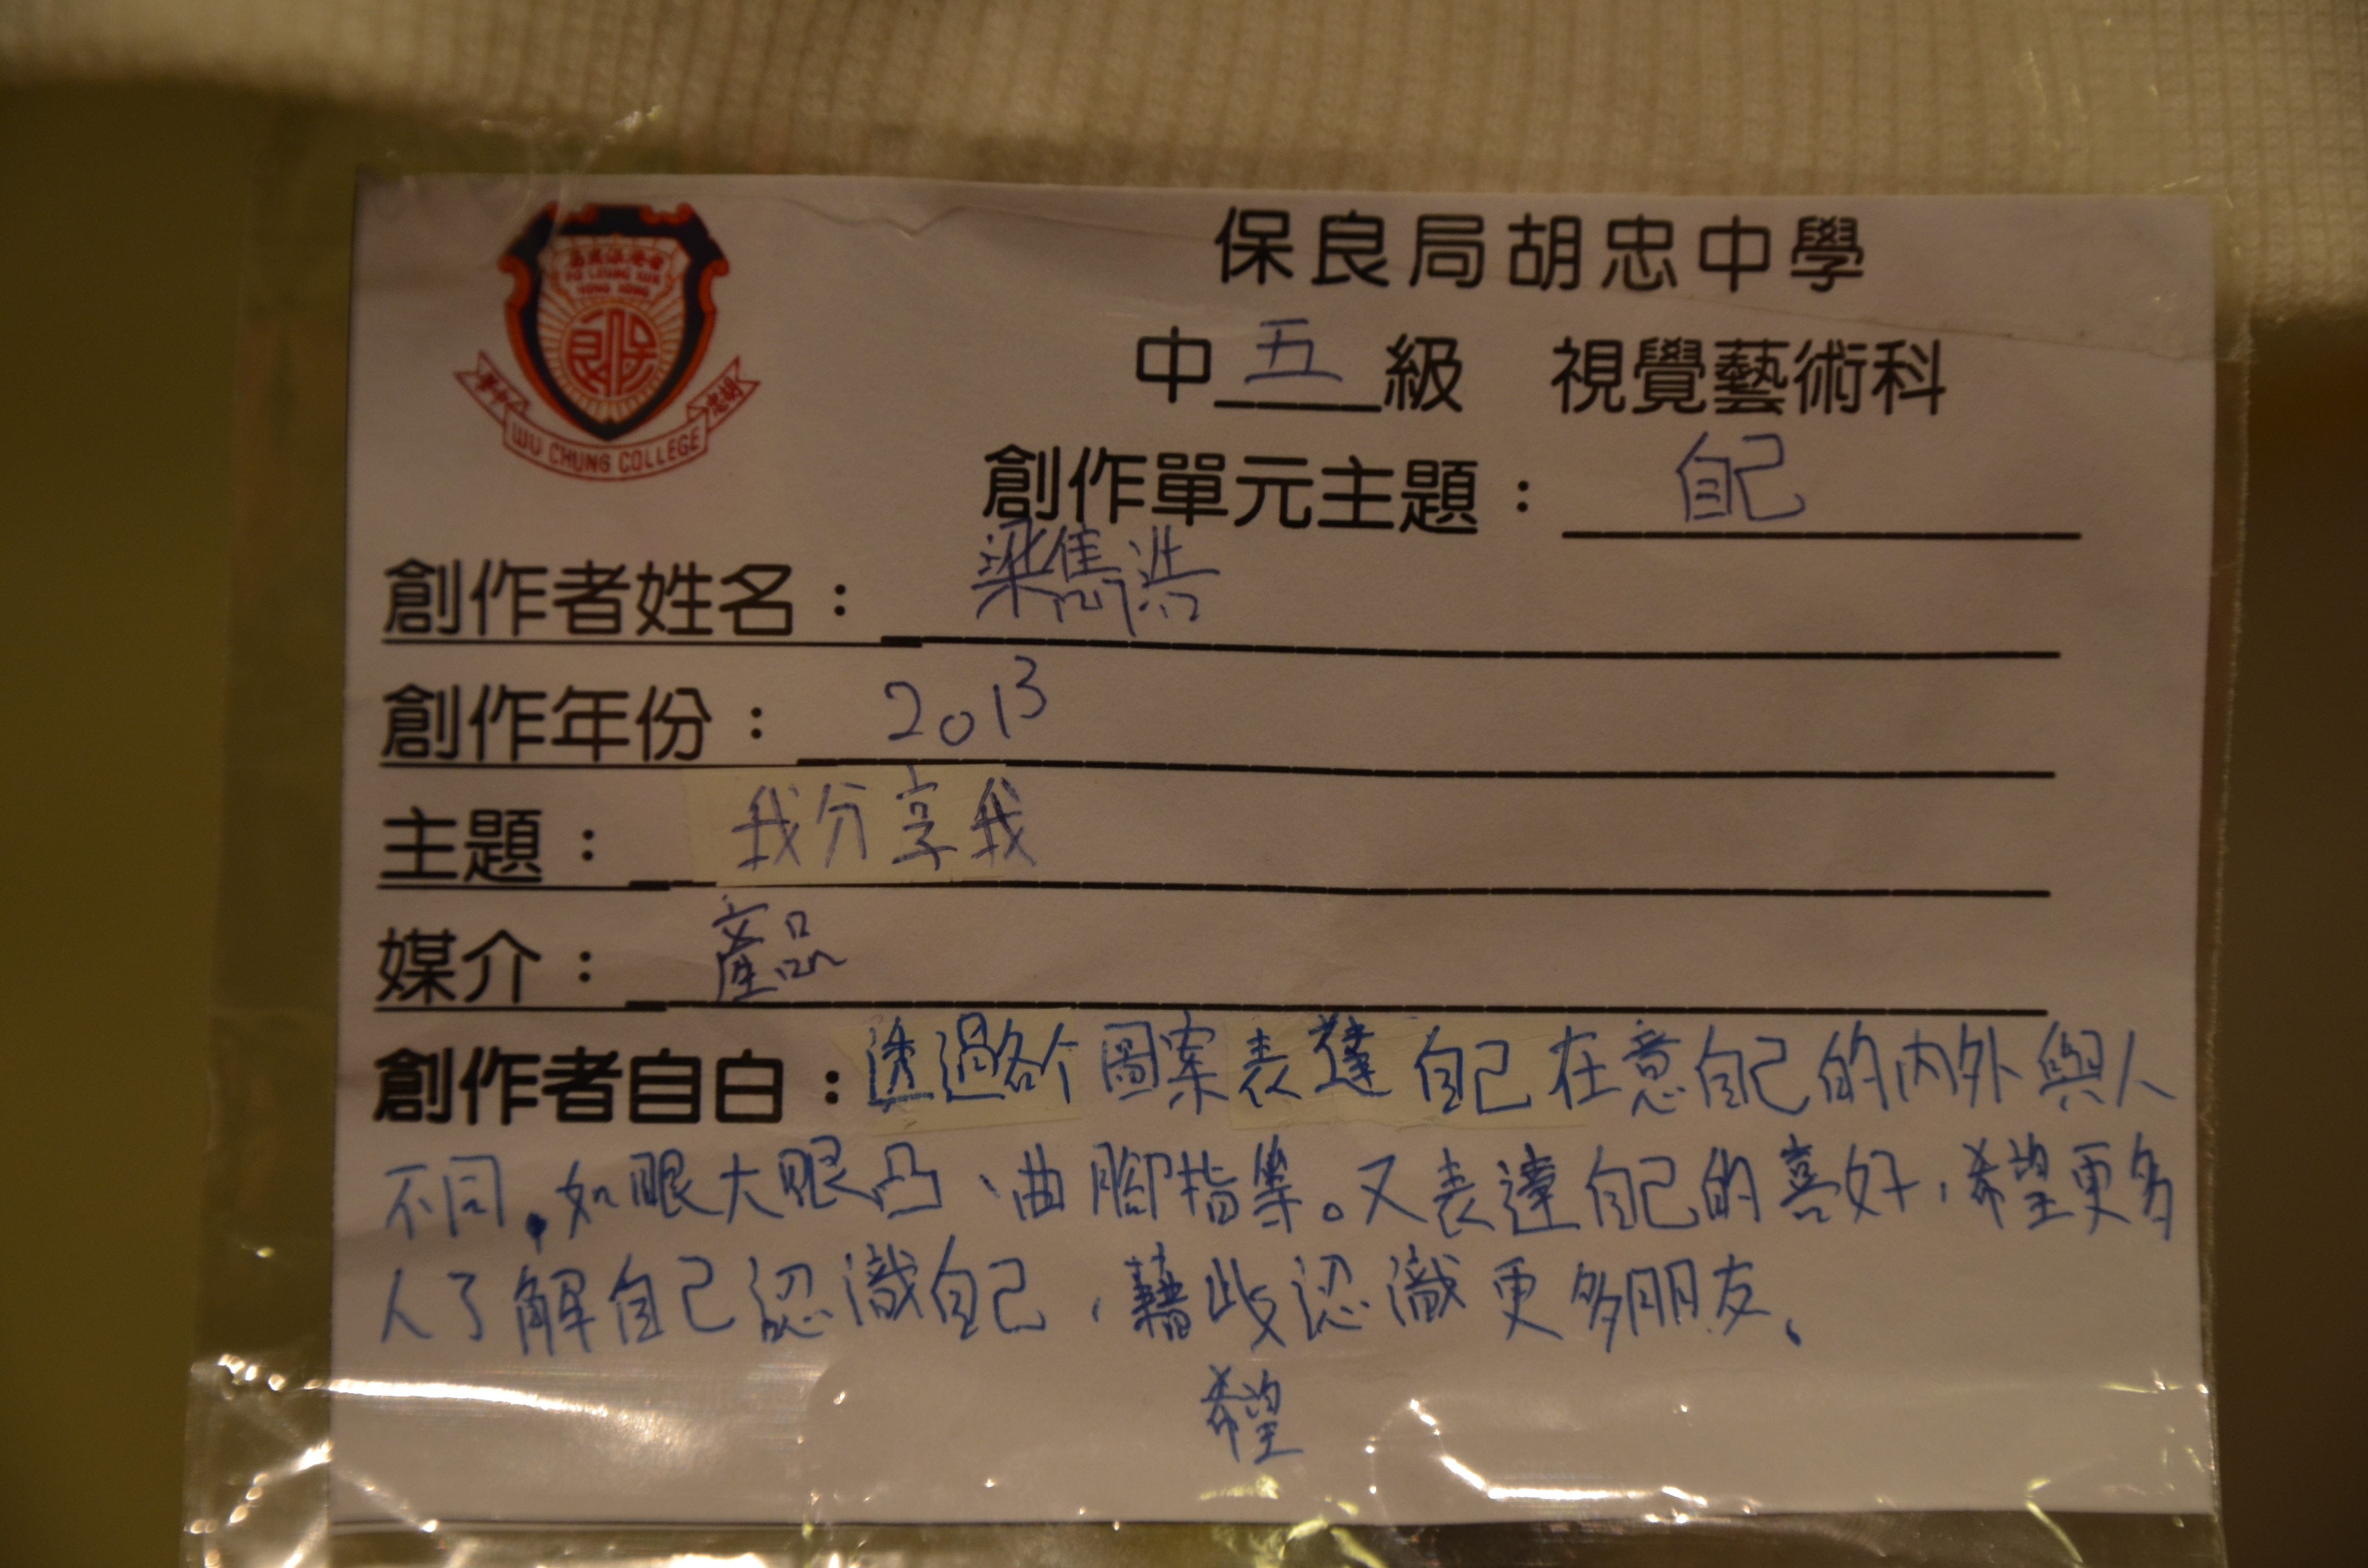 保良局胡忠中學
香港保良局
PO LEUNG KUK
HONG KONG
保良
中學 胡忠
WU CHUNG COLLEGE
中五級 視覺藝術科
創作單元主題：自己
創作者姓名：梁雋洪
創作年份：2013
主題：我分享我
媒介：產品
創作者自白：透過各个圖案表達自己在意自己的內外與人
不同，如眼大眼凸、曲腳指等。又表達自己的喜好，希望更多
人了解自己認識自己，藉此認識更多朋友。
希望